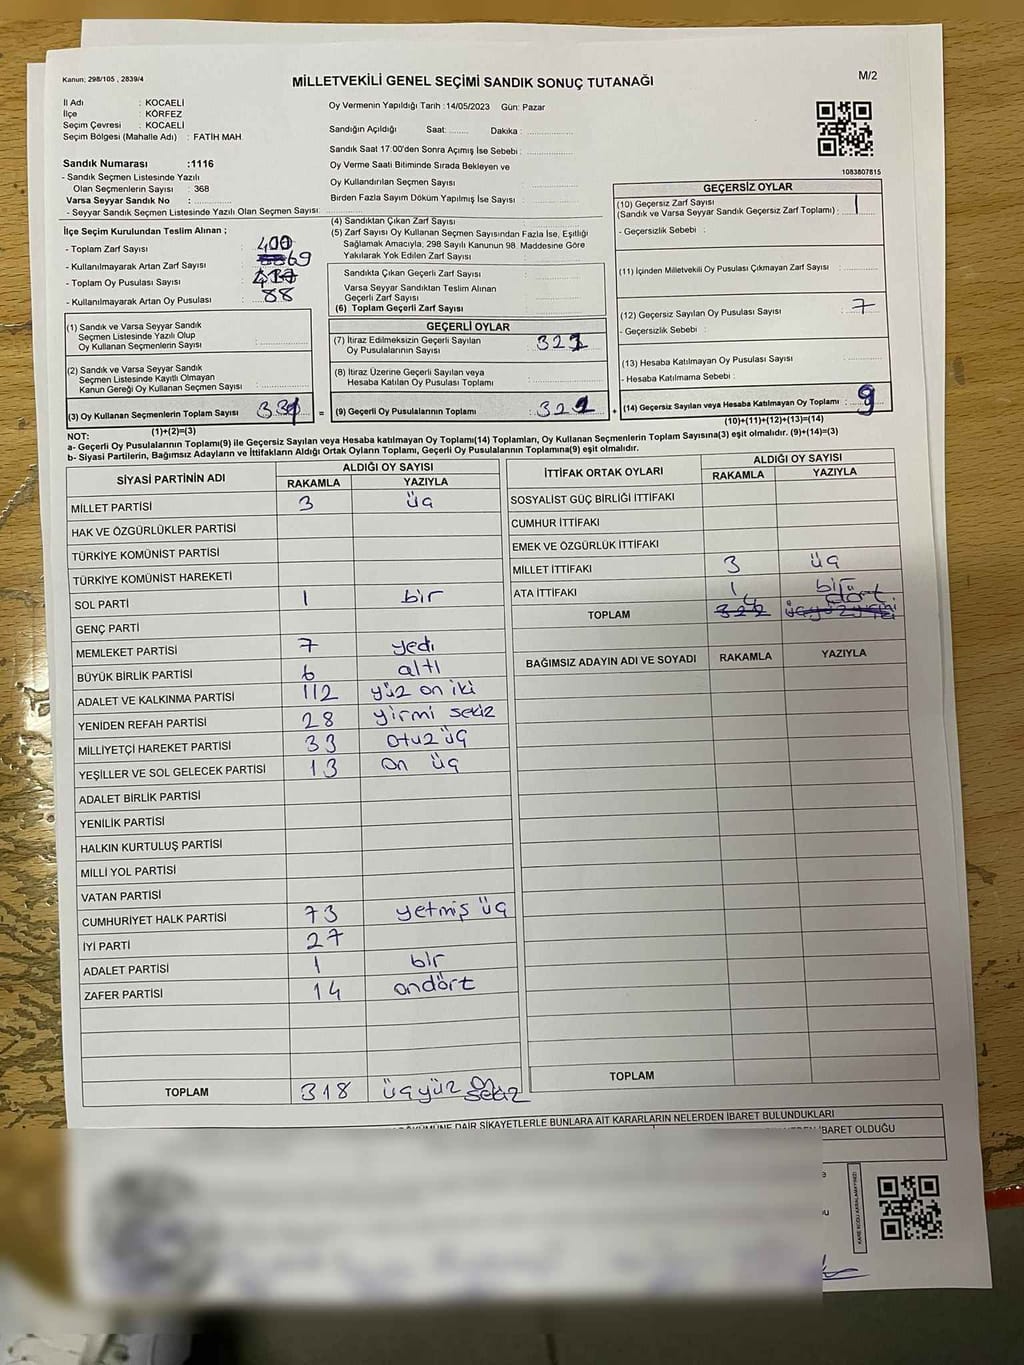 Kanun; 298/105 , 2839/4
MİLLETVEKİLİ GENEL SEÇİMİ SANDIK SONUÇ TUTANAĞI
M/2
İl Adı : KOCAELİ
İlçe : KÖRFEZ
Seçim Çevresi : KOCAELİ
Seçim Bölgesi (Mahalle Adı) : FATİH MAH.
Sandık Numarası :1116
- Sandık Seçmen Listesinde Yazılı
Olan Seçmenlerin Sayısı : 368
Varsa Seyyar Sandık No :
- Seyyar Sandık Seçmen Listesinde Yazılı Olan Seçmen Sayısı:
Oy Vermenin Yapıldığı Tarih :14/05/2023 Gün: Pazar
Sandığın Açıldığı Saat: Dakika :
Sandık Saat 17:00'den Sonra Açımış İse Sebebi :
Oy Verme Saati Bitiminde Sırada Bekleyen ve
Oy Kullandırılan Seçmen Sayısı :
Birden Fazla Sayım Döküm Yapılmış İse Sayısı :
1083807815
İlçe Seçim Kurulundan Teslim Alınan ;
- Toplam Zarf Sayısı : 400
- Kullanılmayarak Artan Zarf Sayısı : 69
- Toplam Oy Pusulası Sayısı :
- Kullanılmayarak Artan Oy Pusulası : 88
(1) Sandık ve Varsa Seyyar Sandık
Seçmen Listesinde Yazılı Olup
Oy Kullanan Seçmenlerin Sayısı :
(2) Sandık ve Varsa Seyyar Sandık
Seçmen Listesinde Kayıtlı Olmayan
Kanun Gereği Oy Kullanan Seçmen Sayısı :
(3) Oy Kullanan Seçmenlerin Toplam Sayısı :
(1)+(2)=(3)
(4) Sandıktan Çıkan Zarf Sayısı :
(5) Zarf Sayısı Oy Kullanan Seçmen Sayısından Fazla İse, Eşitliği
Sağlamak Amacıyla, 298 Sayılı Kanunun 98. Maddesine Göre
Yakılarak Yok Edilen Zarf Sayısı :
Sandıkta Çıkan Geçerli Zarf Sayısı :
Varsa Seyyar Sandıktan Teslim Alınan
Geçerli Zarf Sayısı :
(6) Toplam Geçerli Zarf Sayısı :
GEÇERLİ OYLAR
(7) İtiraz Edilmeksizin Geçerli Sayılan
Oy Pusulalarının Sayısı :
(8) İtiraz Üzerine Geçerli Sayılan veya
Hesaba Katılan Oy Pusulası Toplamı :
= (9) Geçerli Oy Pusulalarının Toplamı :
GEÇERSİZ OYLAR
(10) Geçersiz Zarf Sayısı
(Sandık ve Varsa Seyyar Sandık Geçersiz Zarf Toplamı) : 1
- Geçersizlik Sebebi :
(11) İçinden Milletvekili Oy Pusulası Çıkmayan Zarf Sayısı :
(12) Geçersiz Sayılan Oy Pusulası Sayısı : 7
- Geçersizlik Sebebi :
(13) Hesaba Katılmayan Oy Pusulası Sayısı :
- Hesaba Katılmama Sebebi :
+ (14) Geçersiz Sayılan veya Hesaba Katılmayan Oy Toplamı : 9
(10)+(11)+(12)+(13)=(14)
NOT:
a- Geçerli Oy Pusulalarının Toplamı(9) ile Geçersiz Sayılan veya Hesaba katılmayan Oy Toplamı(14) Toplamları, Oy Kullanan Seçmenlerin Toplam Sayısına(3) eşit olmalıdır. (9)+(14)=(3)
b- Siyasi Partilerin, Bağımsız Adayların ve İttifakların Aldığı Ortak Oyların Toplamı, Geçerli Oy Pusulalarının Toplamına(9) eşit olmalıdır.
SİYASİ PARTİNİN ADI ALDIĞI OY SAYISI
RAKAMLA YAZIYLA
MİLLET PARTİSİ 3 üç
HAK VE ÖZGÜRLÜKLER PARTİSİ
TÜRKİYE KOMÜNİST PARTİSİ
TÜRKİYE KOMÜNİST HAREKETİ
SOL PARTİ 1 bir
GENÇ PARTİ
MEMLEKET PARTİSİ 7 yedi
BÜYÜK BİRLİK PARTİSİ 6 altı
ADALET VE KALKINMA PARTİSİ 112 yüz on iki
YENİDEN REFAH PARTİSİ 28 yirmi sekiz
MİLLİYETÇİ HAREKET PARTİSİ 33 otuz üç
YEŞİLLER VE SOL GELECEK PARTİSİ 13 on üç
ADALET BİRLİK PARTİSİ
YENİLİK PARTİSİ
HALKIN KURTULUŞ PARTİSİ
MİLLİ YOL PARTİSİ
VATAN PARTİSİ
CUMHURİYET HALK PARTİSİ 73 yetmiş üç
İYİ PARTİ 27
ADALET PARTİSİ 1 bir
ZAFER PARTİSİ 14 ondört
TOPLAM 318 üçyüz on sekiz
İTTİFAK ORTAK OYLARI ALDIĞI OY SAYISI
RAKAMLA YAZIYLA
SOSYALİST GÜÇ BİRLİĞİ İTTİFAKI
CUMHUR İTTİFAKI
EMEK VE ÖZGÜRLÜK İTTİFAKI
MİLLET İTTİFAKI 3 üç
ATA İTTİFAKI 1 bir
TOPLAM 4 dört
BAĞIMSIZ ADAYIN ADI VE SOYADI RAKAMLA YAZIYLA
TOPLAM
DAİR ŞİKAYETLERLE BUNLARA AİT KARARLARIN NELERDEN İBARET BULUNDUKLARI
İBARET OLDUĞU